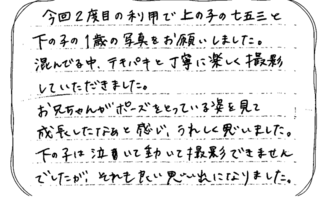 今回2度目の利用で上の子の七五三と
下の子の1歳の写真をお願いしました。
混んでる中、テキパキと丁寧に楽しく撮影
していただきました。
お兄ちゃんがポーズをとっている姿を見て
成長したなぁと感じ、うれしく思いました。
下の子は泣いて動いて撮影できません
でしたが、それも良い思い出になりました。